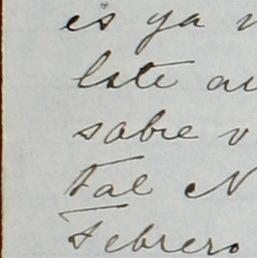 es ya
Este
sobre v
tal N
Febrero